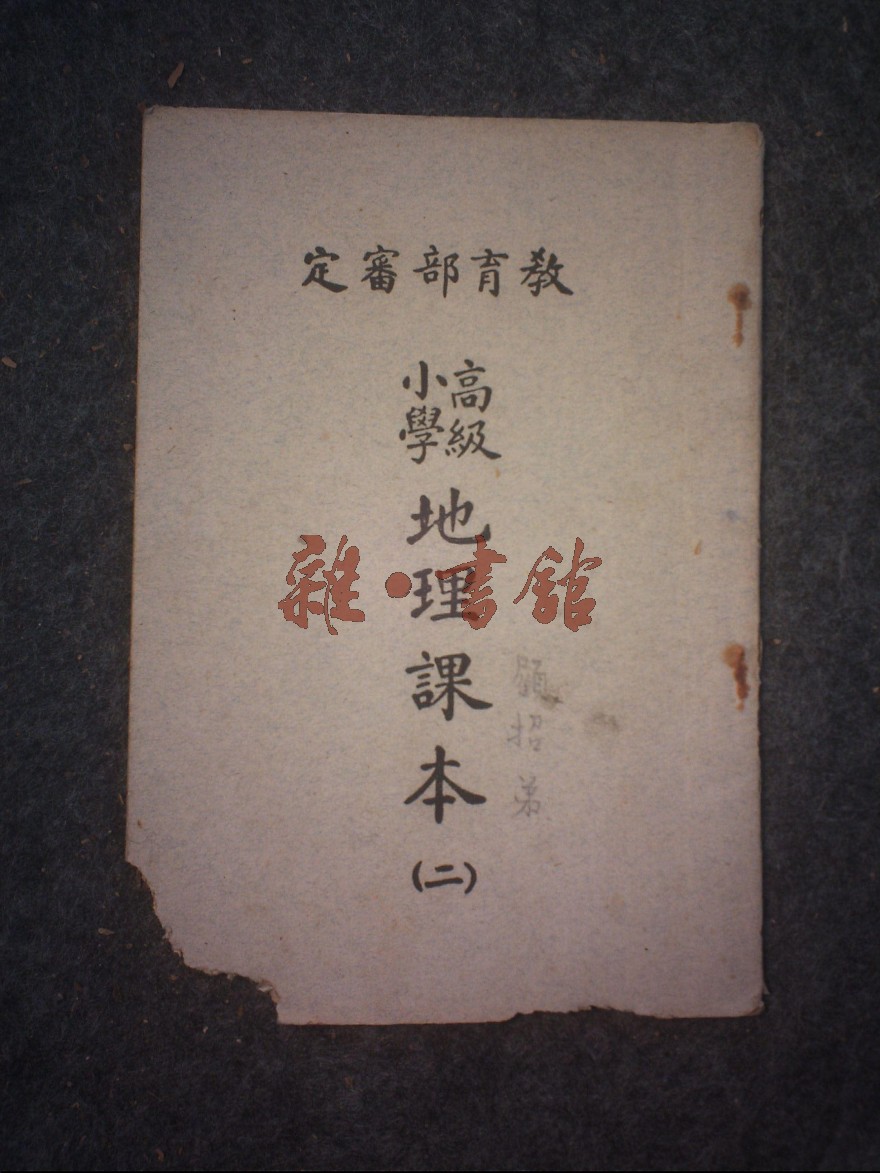 教育部審定
高級
小學
地理課本
(二)
招弟
雜·書館